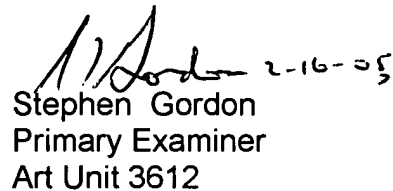 Gordon 2-16-05
Stephen Gordon
Primary Examiner
Art Unit 3612